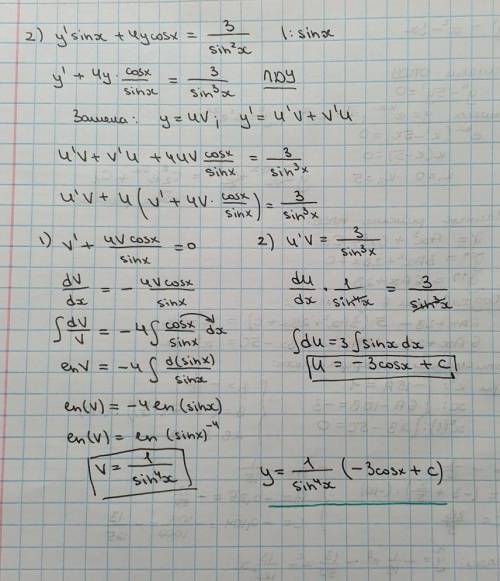 2) y'sinx + 4ycosx = 3/sin²x |: sinx
y' + 4y · cosx/sinx = 3/sin³x ЛДУ
Замена: y = uV; y' = u'V + V'u
u'V + V'u + 4uV cosx/sinx = 3/sin³x
u'V + u(V' + 4V · cosx/sinx) = 3/sin³x
1) V' + 4Vcosx/sinx = 0
dV/dx = - 4Vcosx/sinx
∫ dV/V = -4∫ cosx/sinx dx
lnV = -4∫ d(sinx)/sinx
ln(V) = -4ln(sinx)
ln(V) = ln(sinx)⁻⁴
V = 1/sin⁴x
2) u'V = 3/sin³x
du/dx · 1/sin⁴x = 3/sin³x
∫du = 3∫sinxdx
u = -3cosx + c
y = 1/sin⁴x (-3cosx + c)